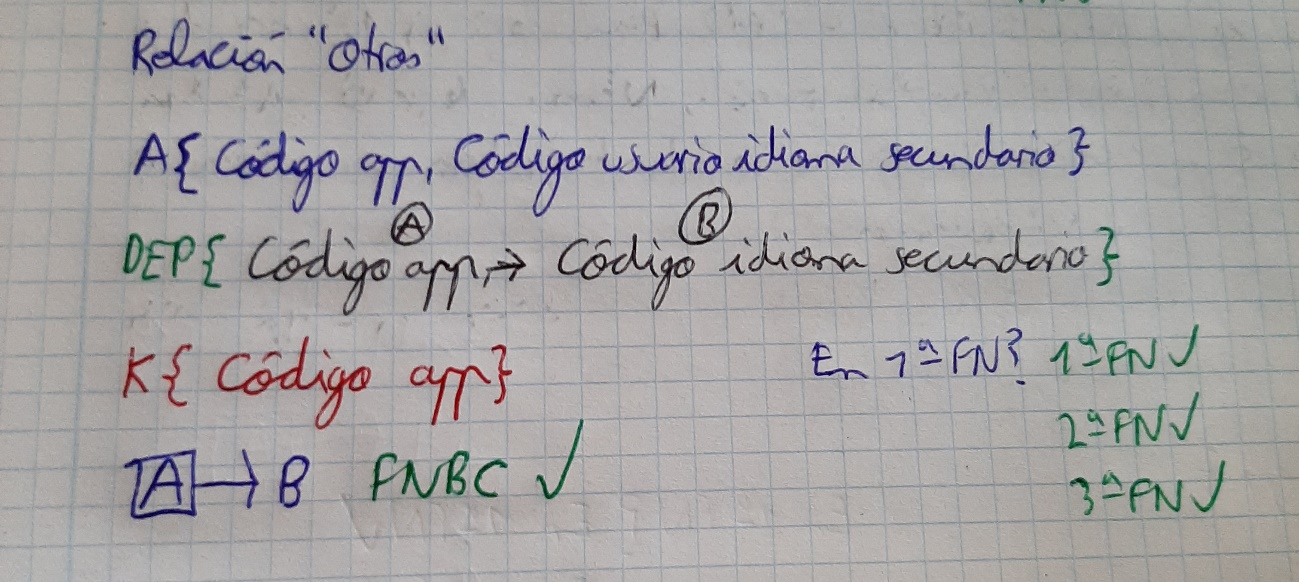 Relación "Otros"
A{ Código app, Código usuario idioma secundario}
A B
DEP{ Código app, → Código idioma secundario}
K{ Código app} En 1ª FN? 1ª FN ✓
2ª FN ✓
A → B FNBC ✓ 3ª FN ✓